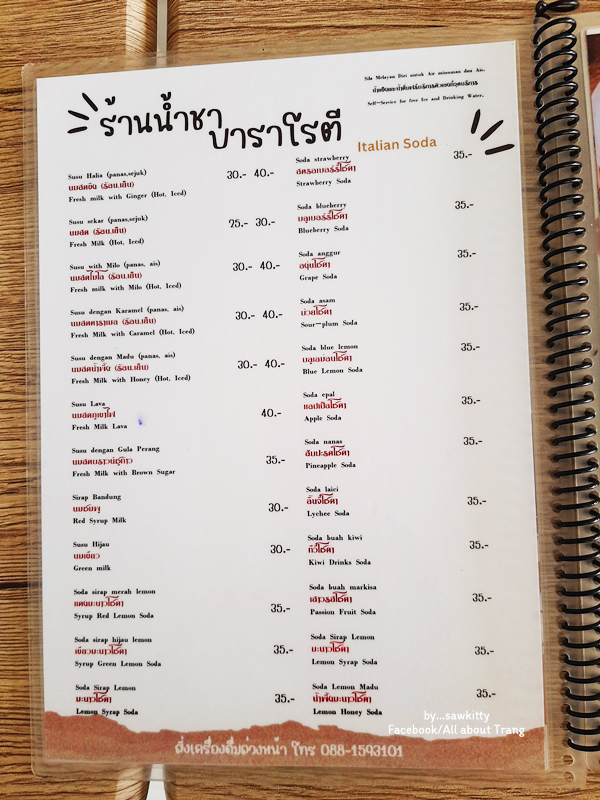 Sila Melayan Diri untuk Air minuman dan Air.
น้ำแข็งและน้ำดื่มฟรีบริการตัวเองที่จุดบริการ
Self-Service for free Ice and Drinking Water.
ร้านน้ำชา
บาราโรตี
Susu Halia (panas,sejuk)
นมสดขิง (ร้อน,เย็น) 30.- 40.-
Fresh milk with Ginger (Hot, Iced)
Susu sekar (panas,sejuk)
นมสด (ร้อน,เย็น) 25.- 30.-
Fresh Milk (Hot, Iced)
Susu with Milo (panas, ais)
นมสดไมโล (ร้อน,เย็น) 30.- 40.-
Fresh milk with Milo (Hot, Iced)
Susu dengan Karamel (panas, ais)
นมสดคาราเมล (ร้อน,เย็น) 30.- 40.-
Fresh Milk with Caramel (Hot, Iced)
Susu dengan Madu (panas, ais)
นมสดน้ำผึ้ง (ร้อน,เย็น) 30.- 40.-
Fresh Milk with Honey (Hot, Iced)
Susu Lava
นมสดภูเขาไฟ 40.-
Fresh Milk Lava
Susu dengan Gula Perang
นมสดบราวน์ชูก้าว 35.-
Fresh Milk with Brown Sugar
Sirap Bandung
นมชมพู 30.-
Red Syrup Milk
Susu Hijau
นมเขียว 30.-
Green milk
Soda sirap merah lemon
แดงมะนาวโซดา 35.-
Syrup Red Lemon Soda
Soda sirap hijau lemon
เขียวมะนาวโซดา 35.-
Syrup Green Lemon Soda
Soda Sirap Lemon
มะนาวโซดา 35.-
Lemon Syrap Soda
Italian Soda
Soda strawberry 35.-
สตรอเบอร์รี่โซดา
Strawberry Soda
Soda blueberry 35.-
บลูเบอร์รี่โซดา
Blueberry Soda
Soda anggur 35.-
องุ่นโซดา
Grape Soda
Soda asam 35.-
บ๊วยโซดา
Sour-plum Soda
Soda blue lemon 35.-
บลูเลม่อนโซดา
Blue Lemon Soda
Soda epal 35.-
แอปเปิ้ลโซดา
Apple Soda
Soda nanas 35.-
สับปะรดโซดา
Pineapple Soda
Soda laici 35.-
ลิ้นจี่โซดา
Lychee Soda
Soda buah kiwi 35.-
กีวีโซดา
Kiwi Drinks Soda
Soda buah markisa 35.-
เสาวรสโซดา
Passion Fruit Soda
Soda Sirap Lemon 35.-
มะนาวโซดา
Lemon Syrap Soda
Soda Lemon Madu 35.-
น้ำผึ้งมะนาวโซดา
Lemon Honey Soda
by...sawkitty
Facebook/All about Trang
สั่งเครื่องดื่มล่วงหน้า โทร 088-1593101